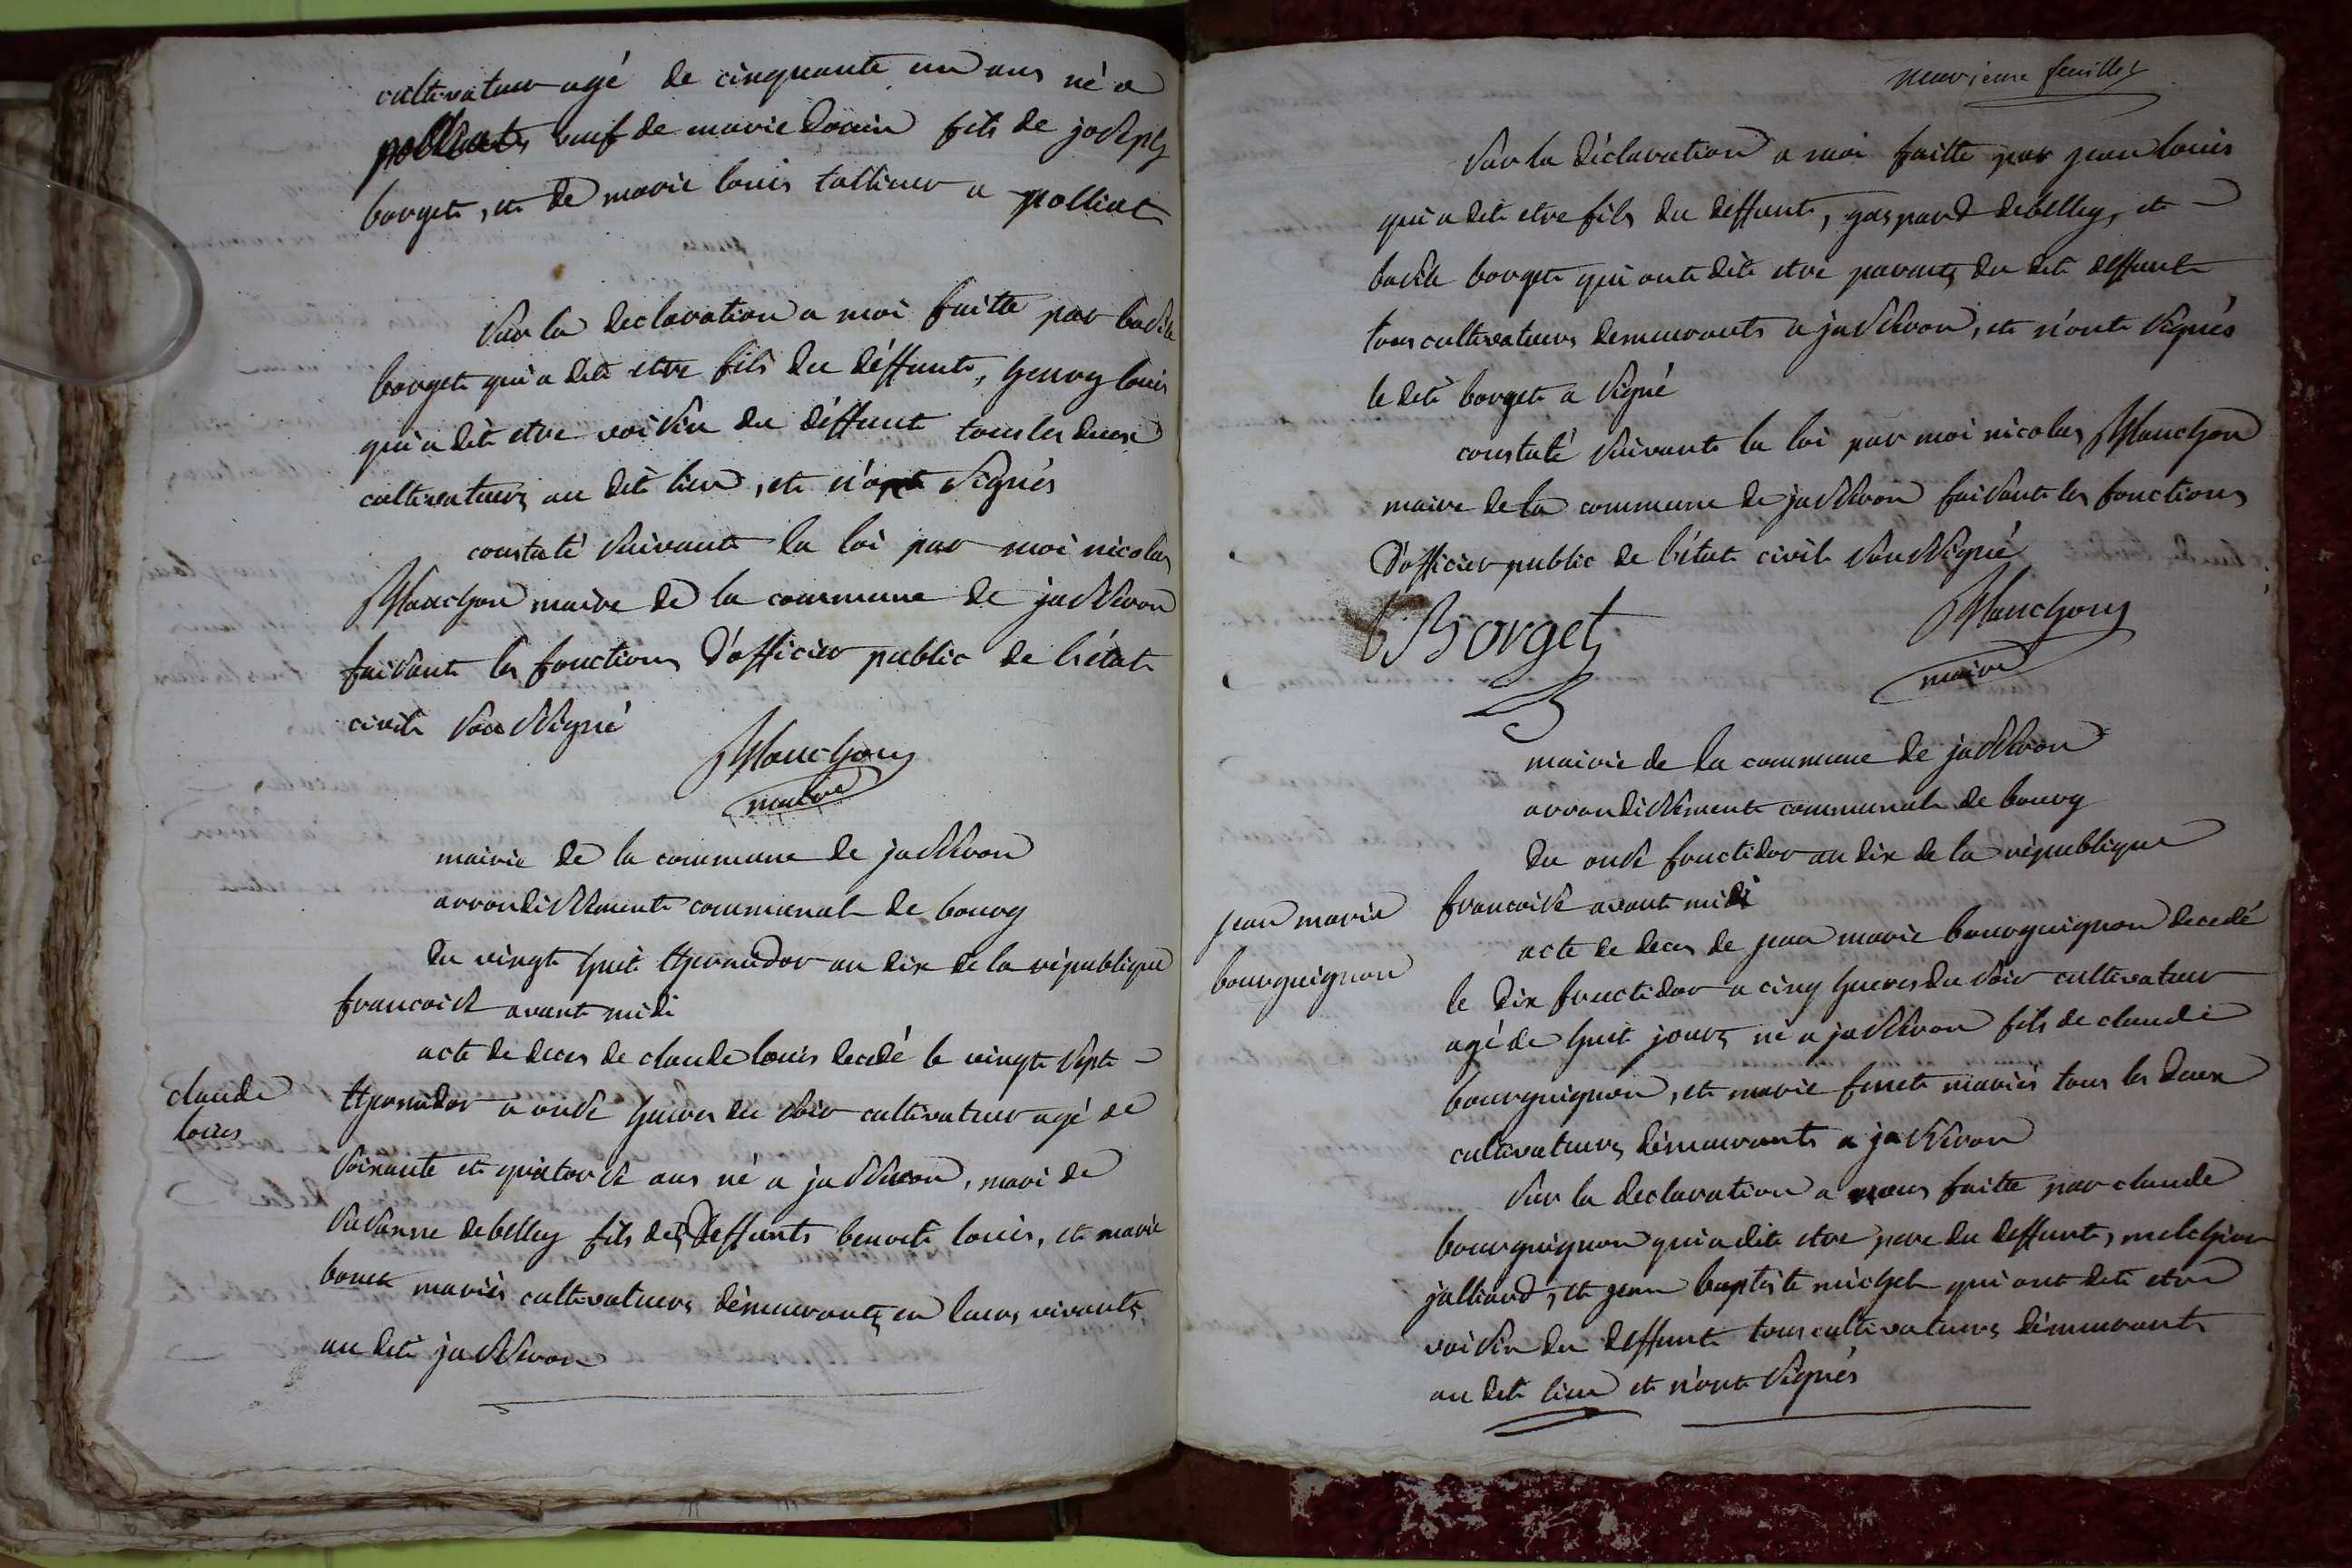 cultivateur agé de cinquante un ans né a
polliat, veuf de marie douin fils de joseph
borget, et de marie louis tattieur a polliat
Sur la declaration a moi faitte par basile
borget qui a dit etre fils du déffunt, henry louis
qui a dit etre voisin du déffunt tous les deux
cultivateurs au dit lieu, et n'ont signés
constaté suivant la loi par moi nicolas
Manchon maire de la commune de jasseron
faisant les fonctions d'officier public de l'état
civil soussigné
Manchon
maire
mairie de la commune de jasseron
arrondissement communal de bourg
du vingt huit thermidor an dix de la république
francoise avant midi
acte de deces de claude louis decedé le vingt sept
claude
louis
thermidor a onze heures du soir cultivateur agé de
soixante et quatorze ans né a jasseron, mari de
susanne debelley fils des deffunts benoit louis, et marie
bouck mariés cultivateurs démeurants en leurs vivants
au dit jasseron
neuvieme feuillet
Sur la déclaration a moi faitte par jean louis
qui a dit etre fils du deffunt, gaspard debelley, et
basile borget qui ont dit etre parents du dit deffunt
tous cultivateurs demeurants a jasseron, et n'ont signés
le dit borget a signé
constaté suivant la loi par moi nicolas Manchon
maire de la commune de jasseron faisant les fonctions
d'officier public de l'état civil soussigné
B Borget
Manchon
maire
mairie de la commune de jasseron
arrondissement communal de bourg
du onze fructidor an dix de la république
francoise avant midi
jean marie
bourguignon
acte de deces de jean marie bourguignon decedé
le dix fructidor a cinq heures du soir cultivateur
agé de huit jours né a jasseron fils de claude
bourguignon, et marie finet mariés tous les deux
cultivateurs démeurants a jasseron
Sur la declaration a nous faitte par claude
bourguignon qui a dit etre pere du deffunt, melchior
jalliard, et jean baptiste michel qui ont dit etre
voisin du deffunt tous cultivateurs démeurants
au dit lieu et n'ont signés